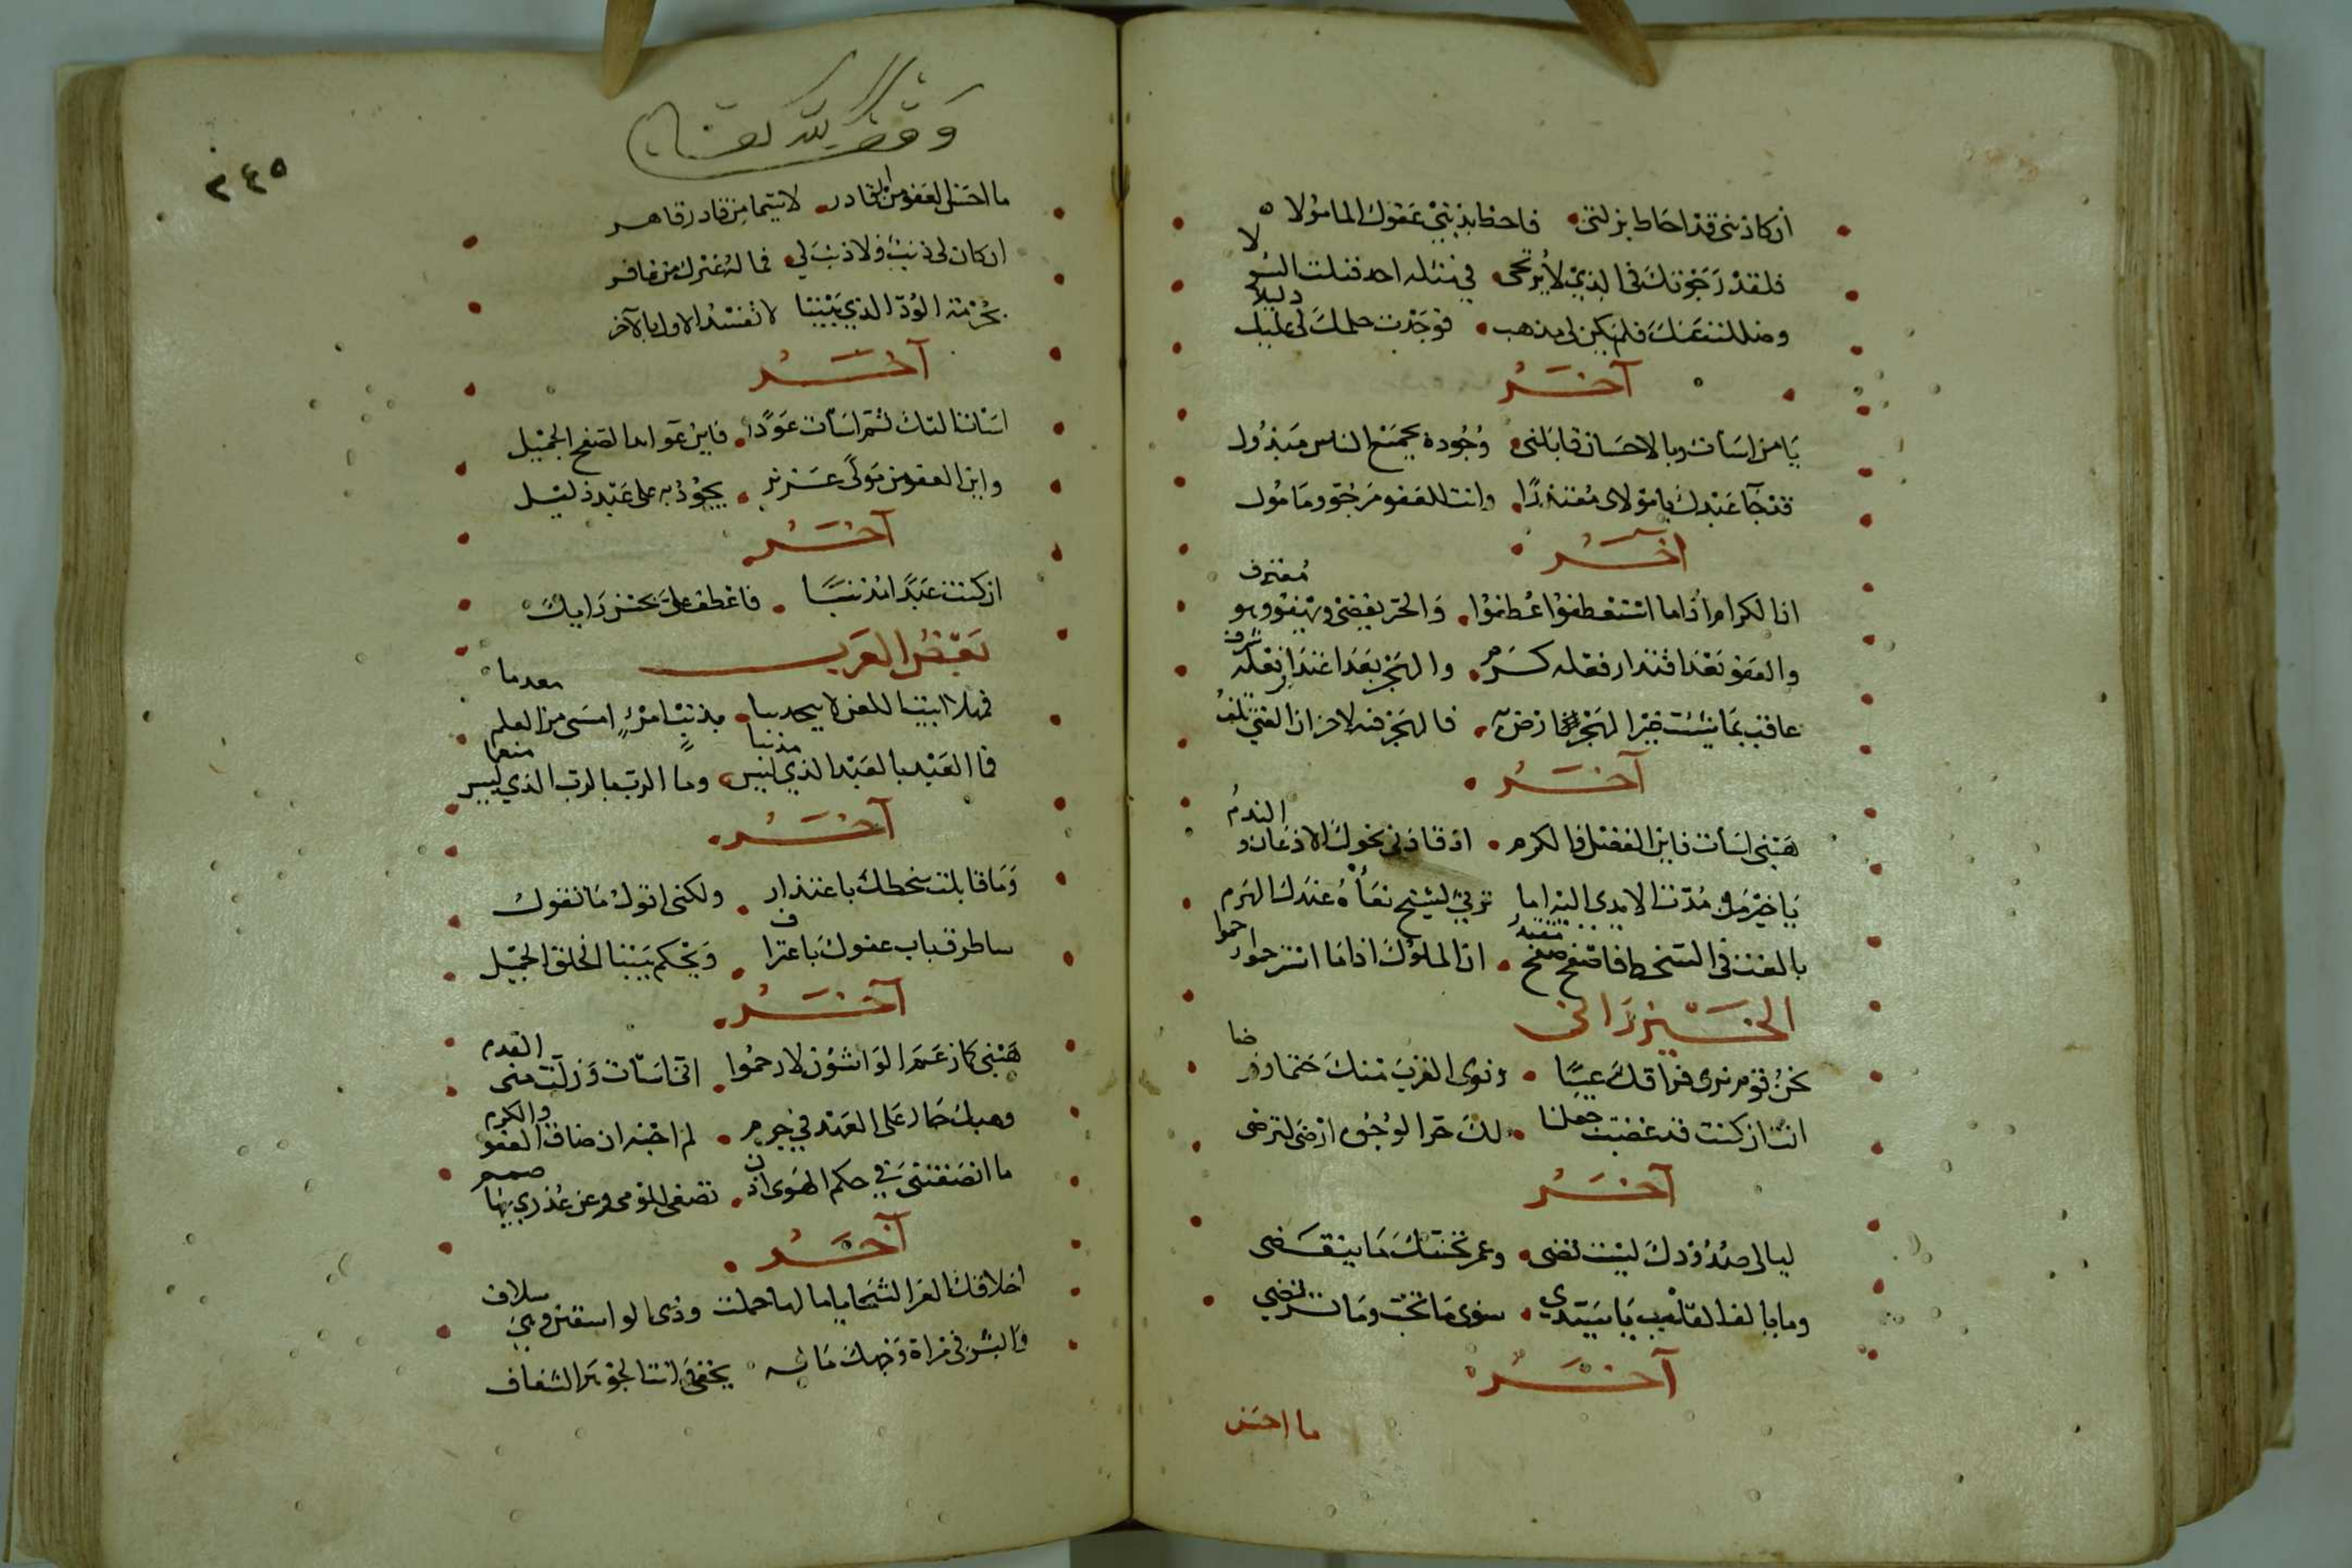 ان كان ذنبي قد احاط بزلتي فاحط بذنبي عفوك المامولا
فلقد رجوتك في الذي لا يرتجى في مثله احد فنلت السولا
وضللت عنك فلم يكن لي مذهب فوجدت حلمك لي عليك دليلا
آخر
يا من اسأت وبالاحسان قابلني وجوده لجميع الناس مبذول
قد جآ عبدك يا مولاى معتذرًا وانت للعفو مرجو ومامول
آخر
ان الكرام اذا ما استعطفوا عطفوا والحر يغضي ويهفو وهو معترف
والعفو بعد اقتدار فعله كرم والهجر بعد اعتذار فعله سرف
عاقب بما شئت غير الهجر ارض به فالهجر فيه لاحزان الفتى تلف
آخر
هبني اسأت فاين الفضل والكرم اذ قادني نحوك الاذعان والندم
يا خير من مدت الايدى اليه اما ترثي لشيخ نعاه عندك الهرم
بالغت في السخط فاصفح صفح مقتدر ان الملوك اذا ما استرحموا رحموا
الخبزرزانى
نحن قوم نرى فراقك عيبًا ونرى القرب منك حتما وفرضا
انت ان كنت قد غضبت جعلنا لك حر الوجوه ارضى لترضى
آخر
ليالى صدودك ليست تقضى وعمر محبتك ما ينقضى
وما بالف القلب يا سيدي سوى ما تحب وما ترتضي
آخر
ما احسن
وقف لله تعالى
٢٤٥
ما احسن العفو من القادر لا سيما من قادر قاهر
ان كان لي ذنب ولا ذنب لي فما له غيرك من غافر
بحرمة الود الذي بيننا لا تفسد الاول بالآخر
آخر
اسأنا ثم اسأت عودًا فاين عوايد الصفح الجميل
واين العفو من مولى عزيز يجود به على عبد ذليل
آخر
ان كنت عبدًا مذنبًا فاعطف علي بحسن رايك
بعض العرب
فهلا ابيت اللعن لا يجد بنا بذنب امرئ امسى من العلم معدما
فما العبد بالعبد الذي ليس مذنبا وما الرب بالرب الذي ليس منعما
آخر
وما قابلت سخطك باعتذار ولكنى اقول ما تقول
ساطرق باب عفوك باعتراف ويحكم بيننا الخلق الجميل
آخر
هبني كما زعم الواشون لا رحموا انى اسأت وزلت منى القدم
وهبك ضاق على العبد في جرم لم اجنه ان ضاق العفو والكرم
ما انصفتني في حكم الهوى اذن تصغى للومى وعن عذري بها صمم
آخر
اخلاقك الغر السجايا ما لها حملت قذى الواشين وهى سلاف
والبشر في مرآة وجهك ما له يخفى وانت الجوهر الشفاف